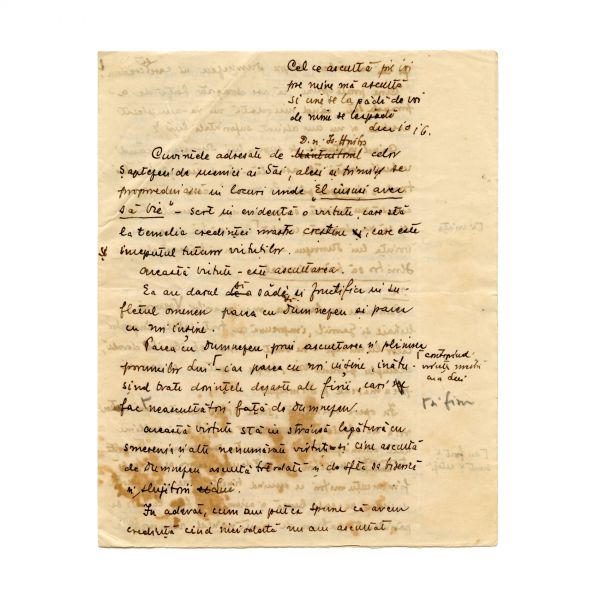 Cel ce ascultă pre voi
pre mine mă ascultă
și cine se lapădă de voi
de mine se leapădă
Luca 10, 16.
D.n. Is. Hristos
Cuvintele adresate de Mântuitorul celor
șaptezeci de ucenici ai Săi, aleși și trimiși se
propoveduiască in locuri unde "El insuși avea
să vie" - scot in evidență o virtute, care stă
la temelia credinței noastre creștine și, care este
inceputul tuturor virtutilor.
Această virtute - este ascultarea.
Ea are darul de a sădi și fructifica in su-
fletul omenesc pacea cu Dumnezeu si pacea
cu noi inșine.
Pacea cu Dumnezeu, prin ascultarea si plinirea
poruncilor Lui - iar pacea cu noi inșine, inăbu-
sind toate dorintele deșarte ale firii, cari
fac neascultători față de Dumnezeu.
voința
a Lui
să fim
Această virtute stă in strânsă legătură cu
smerenia si alte nenumărate virtuti si cine ascultă
de Dumnezeu ascultă totodată si de sfta sa biserică
si slujitorii Lui.
In adevăr, cum am putea spune că avem
credință când niciodată nu am ascultat